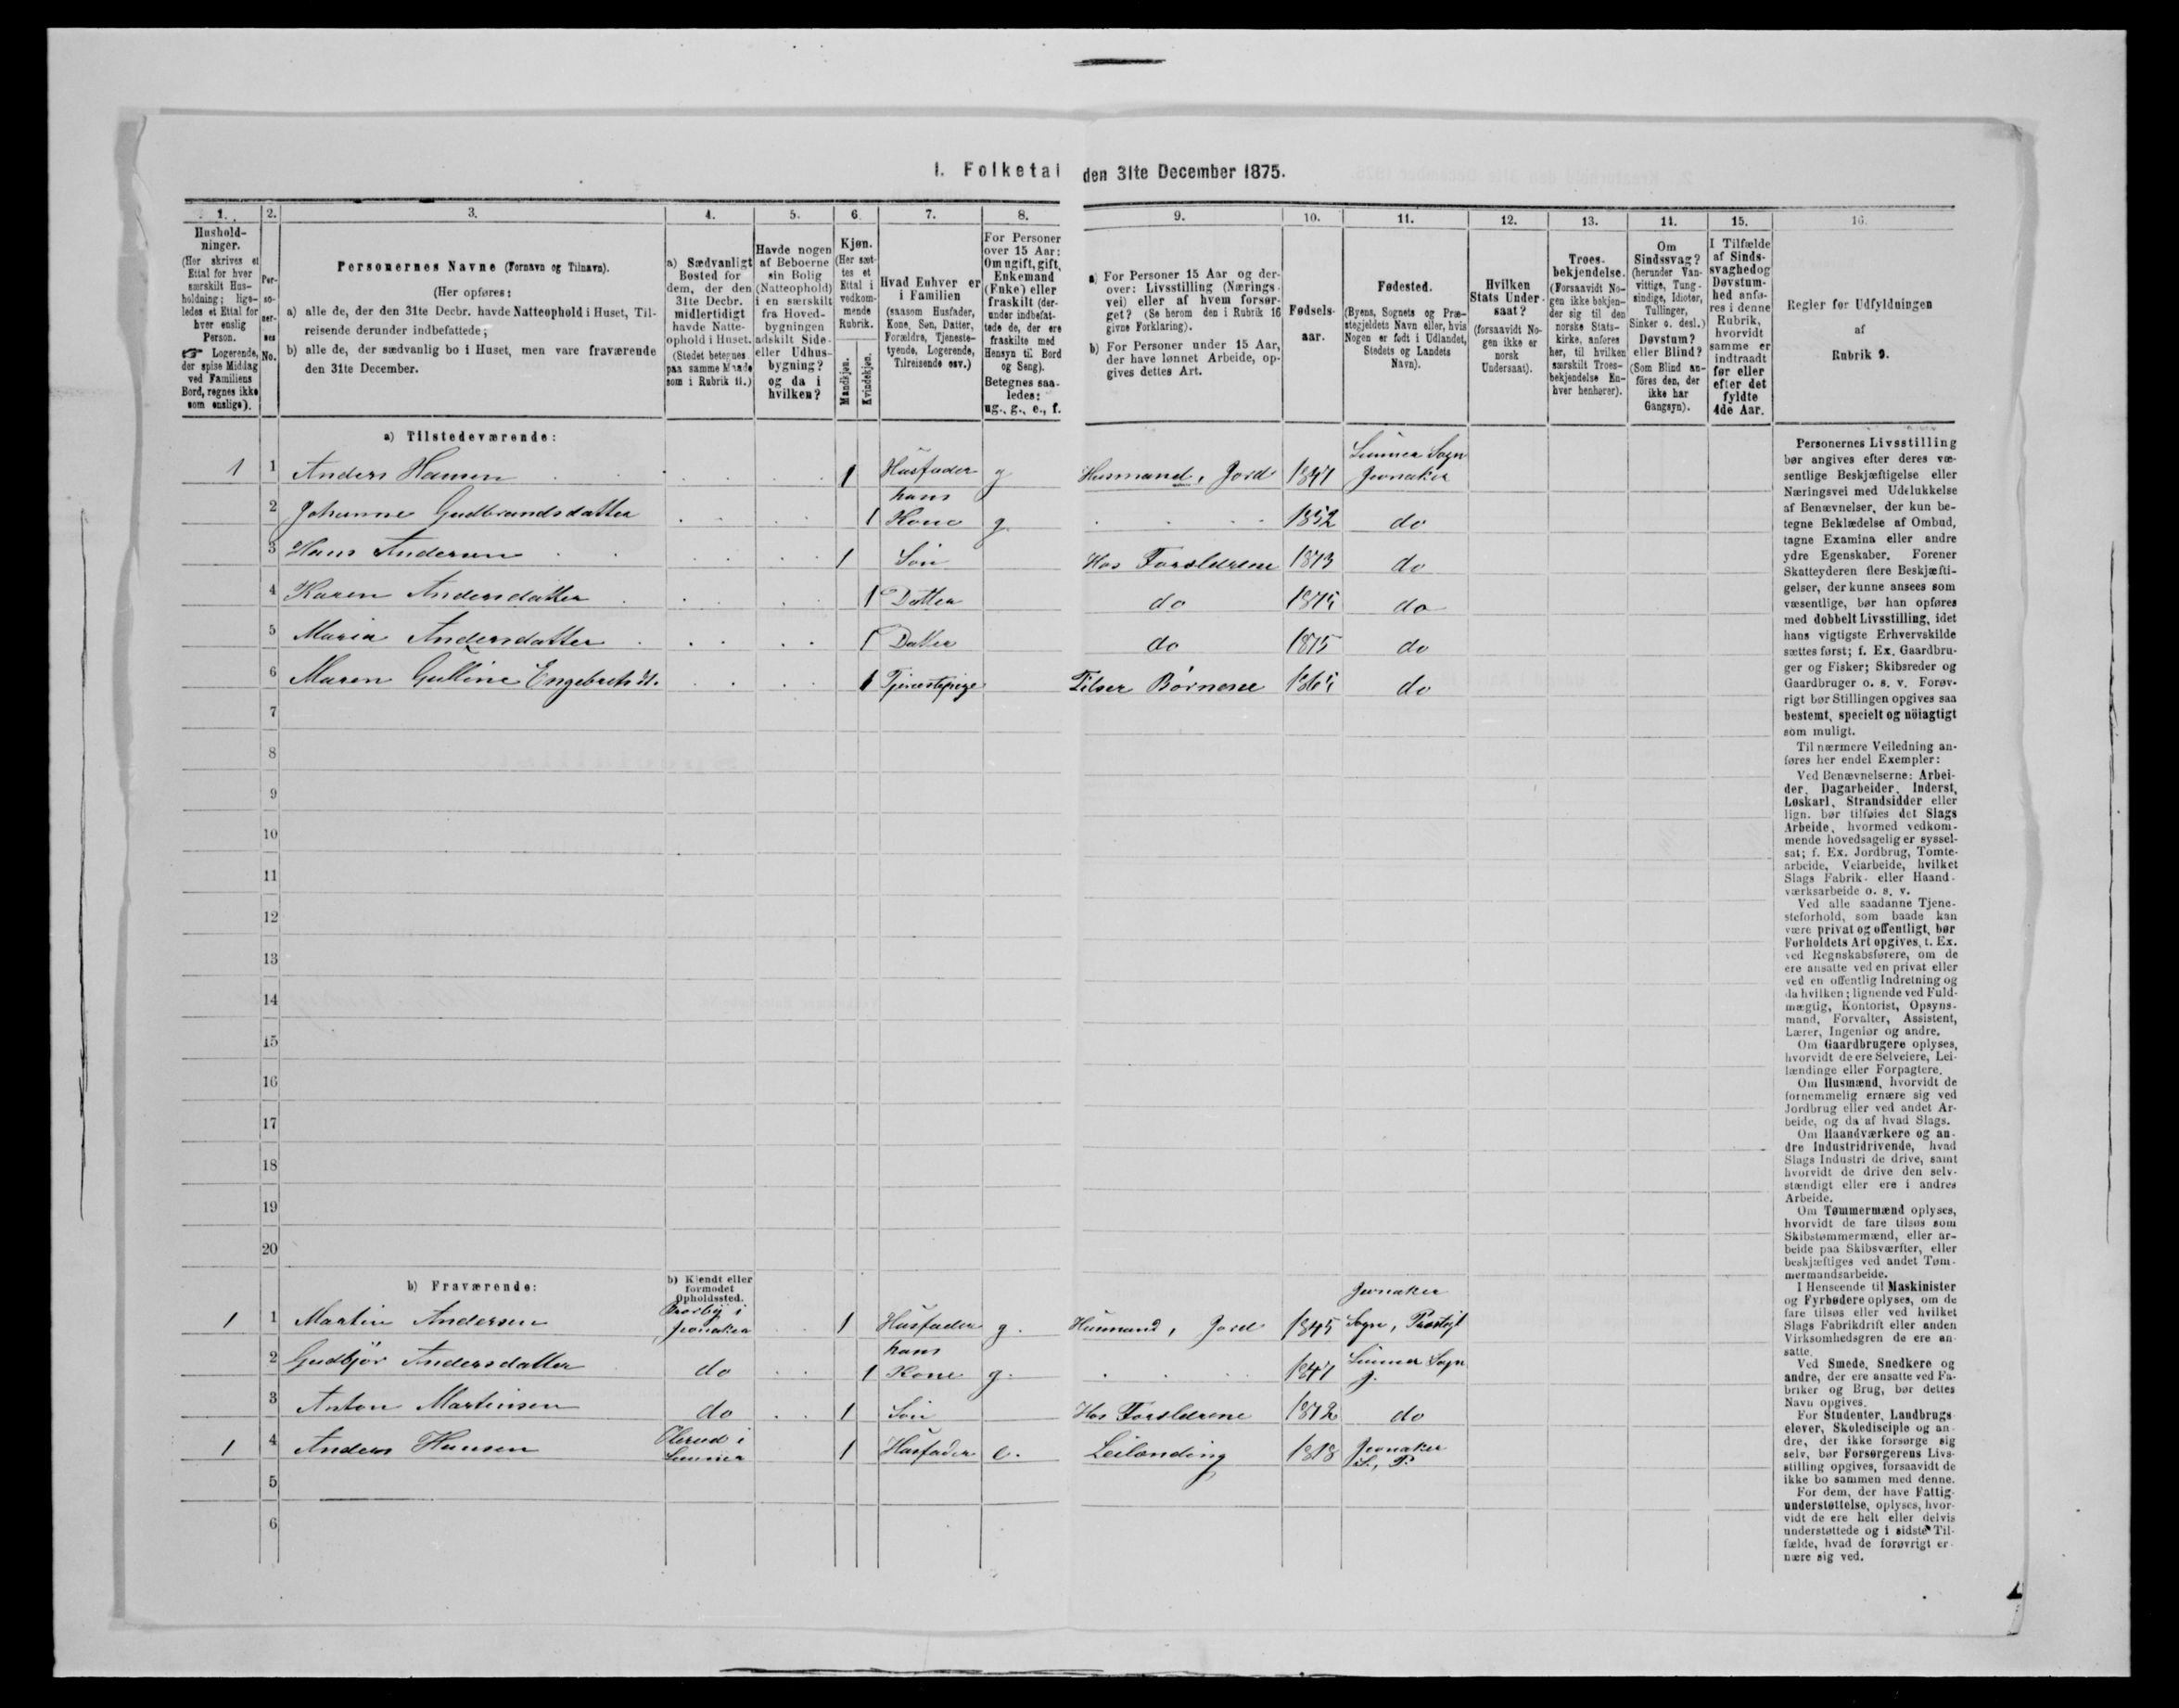 I. Folketal den 31te December 1875.
1. 2. 3. 4. 5. 6. 7. 8. 9. 10. 11. 12. 13. 14. 15. 16.
Hushold-
ninger.
(Her skrives et
Ettal for hver
særskilt Hus-
holdning; lige-
ledes et Ettal for
hver enslig
Person.
☞ Logerende,
der spise Middag
ved Familiens
Bord, regnes ikke
som enslige).
Per-
so-
ner-
nes
No.
Personernes Navne (Fornavn og Tilnavn).
(Her opføres:
a) alle de, der den 31te Decbr. havde Natteophold i Huset, Til-
reisende derunder indbefattede;
b) alle de, der sædvanlig bo i Huset, men vare fraværende
den 31te December.
a) Sædvanligt
Bosted for
dem, der den
31te Decbr.
midlertidigt
havde Natte-
ophold i Huset.
(Stedet betegnes
paa samme Maade
som i Rubrik 11.)
Havde nogen
af Beboerne
sin Bolig
(Natteophold)
i en særskilt
fra Hoved-
bygningen
adskilt Side-
eller Udhus-
bygning?
og da i
hvilken?
Kjøn.
(Her sæt-
tes et
Ettal i
vedkom-
mende
Rubrik.
Mandkjøn.
Kvindekjøn.
Hvad Enhver er
i Familien
(saasom Husfader,
Kone, Søn, Datter,
Forældre, Tjeneste-
tyende, Logerende,
Tilreisende osv.)
For Personer
over 15 Aar:
Om ugift, gift,
Enkemand
(Enke) eller
fraskilt (der-
under indbefat-
tede de, der ere
fraskilte med
Hensyn til Bord
og Seng).
Betegnes saa-
ledes:
ug., g., e., f.
a) For Personer 15 Aar og der-
over: Livsstilling (Nærings-
vei) eller af hvem forsør-
get? (Se herom den i Rubrik 16
givne Forklaring).
b) For Personer under 15 Aar,
der have lønnet Arbeide, op-
gives dettes Art.
Fødsels-
aar.
Fødested.
(Byens, Sognets og Præ-
stegjeldets Navn eller, hvis
Nogen er født i Udlandet,
Stedets og Landets
Navn).
Hvilken
Stats Under-
saat?
(forsaavidt No-
gen ikke er
norsk
Undersaat).
Troes-
bekjendelse.
(Forsaavidt No-
gen ikke bekjen-
der sig til den
norske Stats-
kirke, anføres
her, til hvilken
særskilt Troes-
bekjendelse En-
hver henhører).
Om
Sindssvag?
(herunder Van-
vittige, Tung-
sindige, Idioter,
Tullinger,
Sinker o. desl.)
Døvstum?
eller Blind?
(Som Blind an-
føres den, der
ikke har
Gangsyn).
I Tilfælde
af Sinds-
svaghed og
Døvstum-
hed anfø-
res i denne
Rubrik,
hvorvidt
samme er
indtraadt
før eller
efter det
fyldte
4de Aar.
Regler for Udfyldningen
af
Rubrik 9.
a) Tilstedeværende:
1 1 Anders Hansen 1 Husfader g Husmand, Jord 1847 Lunner Sogn Jevnaker
2 Johanne Gudbrandsdatter 1 hans Kone g. 1852 do
3 Hans Andersen 1 Søn Hos Forældrene 1873 do
4 Karen Andersdatter 1 Datter do 1875 do
5 Maria Andersdatter 1 Datter do 1875 do
6 Maren Gulline Engebretsdt. 1 Tjenestepige Børnene 1865 do
7
8
9
10
11
12
13
14
15
16
17
18
19
20
b) Fraværende:
b) Kjendt eller
formodet
Opholdssted.
1 1 Martin Andersen i Jevnaker 1 Husfader g. Husmand, Jord 1845 Jevnaker Sogn, Præstgj
2 Gudbjør Andersdatter do 1 hans Kone g. 1847 Lunner Sogn J.
3 Anton Martinsen do 1 Søn Hos Forældrene 1872 do
1 4 Anders Hansen Olerud i Lunner 1 Husfader e. Leilænding 1818 Jevnaker S., P.
5
6
Personernes Livsstilling
bør angives efter deres væ-
sentlige Beskjæftigelse eller
Næringsvei med Udelukkelse
af Benævnelser, der kun be-
tegne Beklædelse af Ombud,
tagne Examina eller andre
ydre Egenskaber. Forener
Skatteyderen flere Beskjæfti-
gelser, der kunne ansees som
væsentlige, bør han opføres
med dobbelt Livsstilling, idet
hans vigtigste Erhvervskilde
sættes først; f. Ex. Gaardbru-
ger og Fisker; Skibsreder og
Gaardbruger o. s. v. Forøv-
rigt bør Stillingen opgives saa
bestemt, specielt og nöiagtigt
som muligt.
Til nærmere Veiledning an-
føres her endel Exempler:
Ved Benævnelserne: Arbei-
der, Dagarbeider, Inderst,
Løskarl, Strandsidder eller
lign. bør tilføies det Slags
Arbeide, hvormed vedkom-
mende hovedsagelig er syssel-
sat; f. Ex. Jordbrug, Tomte-
arbeide, Veiarbeide, hvilket
Slags Fabrik- eller Haand-
værksarbeide o. s. v.
Ved alle saadanne Tjene-
steforhold, som baade kan
være privat og offentligt, bør
Forholdets Art opgives, t. Ex.
ved Regnskabsførere, om de
ere ansatte ved en privat eller
ved en offentlig Indretning og
da hvilken; lignende ved Fuld-
mægtig, Kontorist, Opsyns-
mand, Forvalter, Assistent,
Lærer, Ingeniør og andre.
Om Gaardbrugere oplyses,
hvorvidt de ere Selveiere, Lei-
lændinge eller Forpagtere.
Om Husmænd, hvorvidt de
fornemmelig ernære sig ved
Jordbrug eller ved andet Ar-
beide, og da af hvad Slags.
Om Haandværkere og an-
dre Industridrivende, hvad
Slags Industri de drive, samt
hvorvidt de drive den selv-
stændigt eller ere i andres
Arbeide.
Om Tømmermænd oplyses,
hvorvidt de fare tilsøs som
Skibstømmermænd, eller ar-
beide paa Skibsværfter, eller
beskjæftiges ved andet Tøm-
mermandsarbeide.
I Henseende til Maskinister
og Fyrbødere oplyses, om de
fare tilsøs eller ved hvilket
Slags Fabrikdrift eller anden
Virksomhedsgren de ere an-
satte.
Ved Smede, Snedkere og
andre, der ere ansatte ved Fa-
briker og Brug, bør dettes
Navn opgives.
For Studenter, Landbrugs-
elever, Skoledisciple og an-
dre, der ikke forsørge sig
selv, bør Forsørgerens Livs-
stilling opgives, forsaavidt de
ikke bo sammen med denne.
For dem, der have Fattig-
understøttelse, oplyses, hvor-
vidt de ere helt eller delvis
understøttede og i sidste Til-
fælde, hvad de forøvrigt er-
nære sig ved.